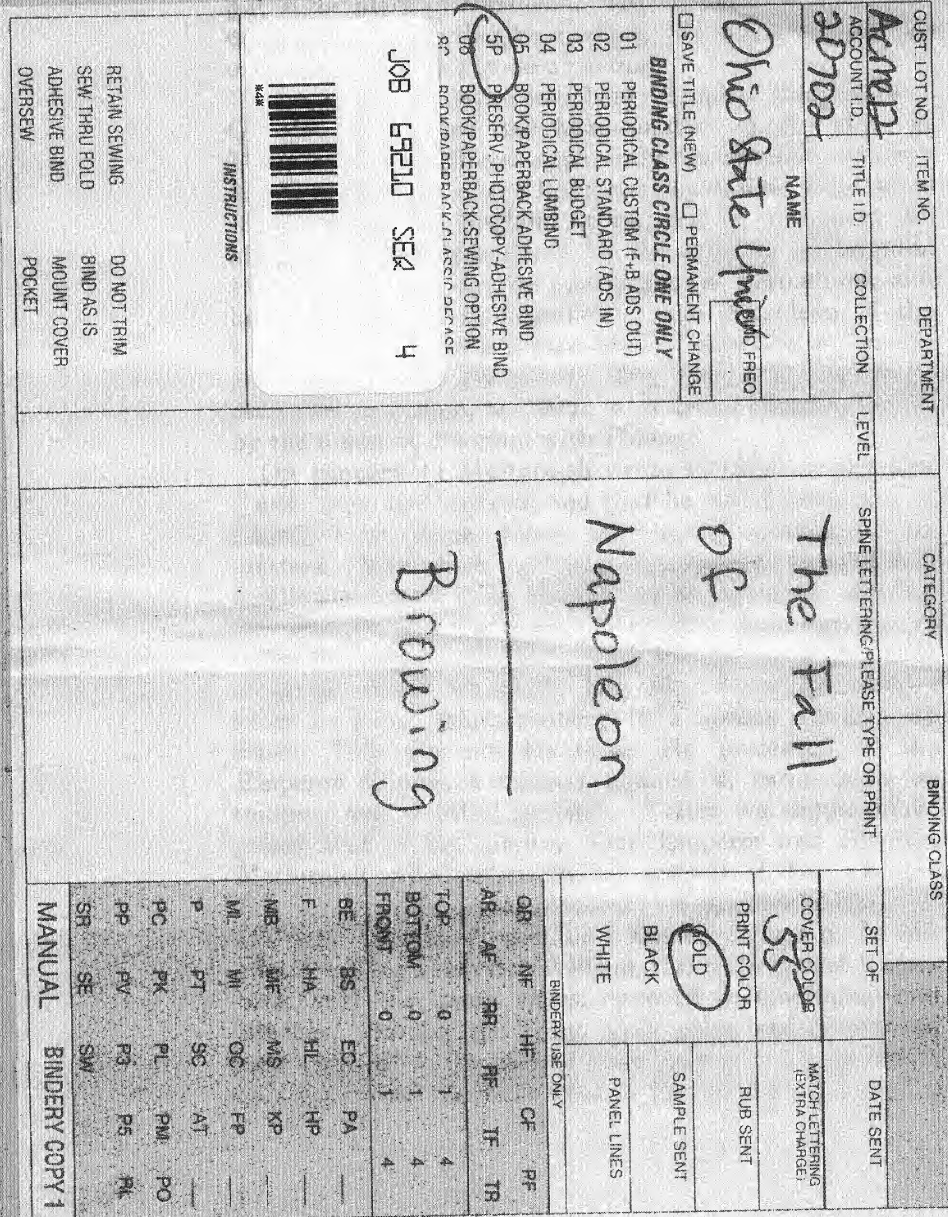 CUST. LOT NO. ITEM NO. DEPARTMENT CATEGORY BINDING CLASS
Acme12
ACCOUNT I.D. TITLE I.D. COLLECTION LEVEL
20702
NAME
Ohio State Univ
BIND FREQ
☐ SAVE TITLE (NEW) ☐ PERMANENT CHANGE
BINDING CLASS CIRCLE ONE ONLY
01 PERIODICAL CUSTOM (F+B ADS OUT)
02 PERIODICAL STANDARD (ADS IN)
03 PERIODICAL BUDGET
04 PERIODICAL LUMBIND
05 BOOK/PAPERBACK ADHESIVE BIND
5P PRESERV. PHOTOCOPY-ADHESIVE BIND
08 BOOK/PAPERBACK-SEWING OPTION
8P BOOK/PAPERBACK-CLASSIC RECASE
JOB 69210 SEQ 4
*4*
INSTRUCTIONS
RETAIN SEWING DO NOT TRIM
SEW THRU FOLD BIND AS IS
ADHESIVE BIND MOUNT COVER
OVERSEW POCKET
SPINE LETTERING/PLEASE TYPE OR PRINT
The Fall
of
Napoleon
Browing
SET OF DATE SENT
COVER COLOR MATCH LETTERING
(EXTRA CHARGE)
55
PRINT COLOR RUB SENT
GOLD
SAMPLE SENT
BLACK
WHITE PANEL LINES
BINDERY USE ONLY
OR NF HF CF PF
AR AF RR RF TF TR
TOP 0 1 4
BOTTOM 0 1 4
FRONT 0 1 4
BE BS EC PA
F HA HL HP
MB ME MS KP
ML MI OC FP
P PT SC AT
PC PK PL PM PO
PP PV P3 P5 PK
SR SE SW
MANUAL BINDERY COPY 1